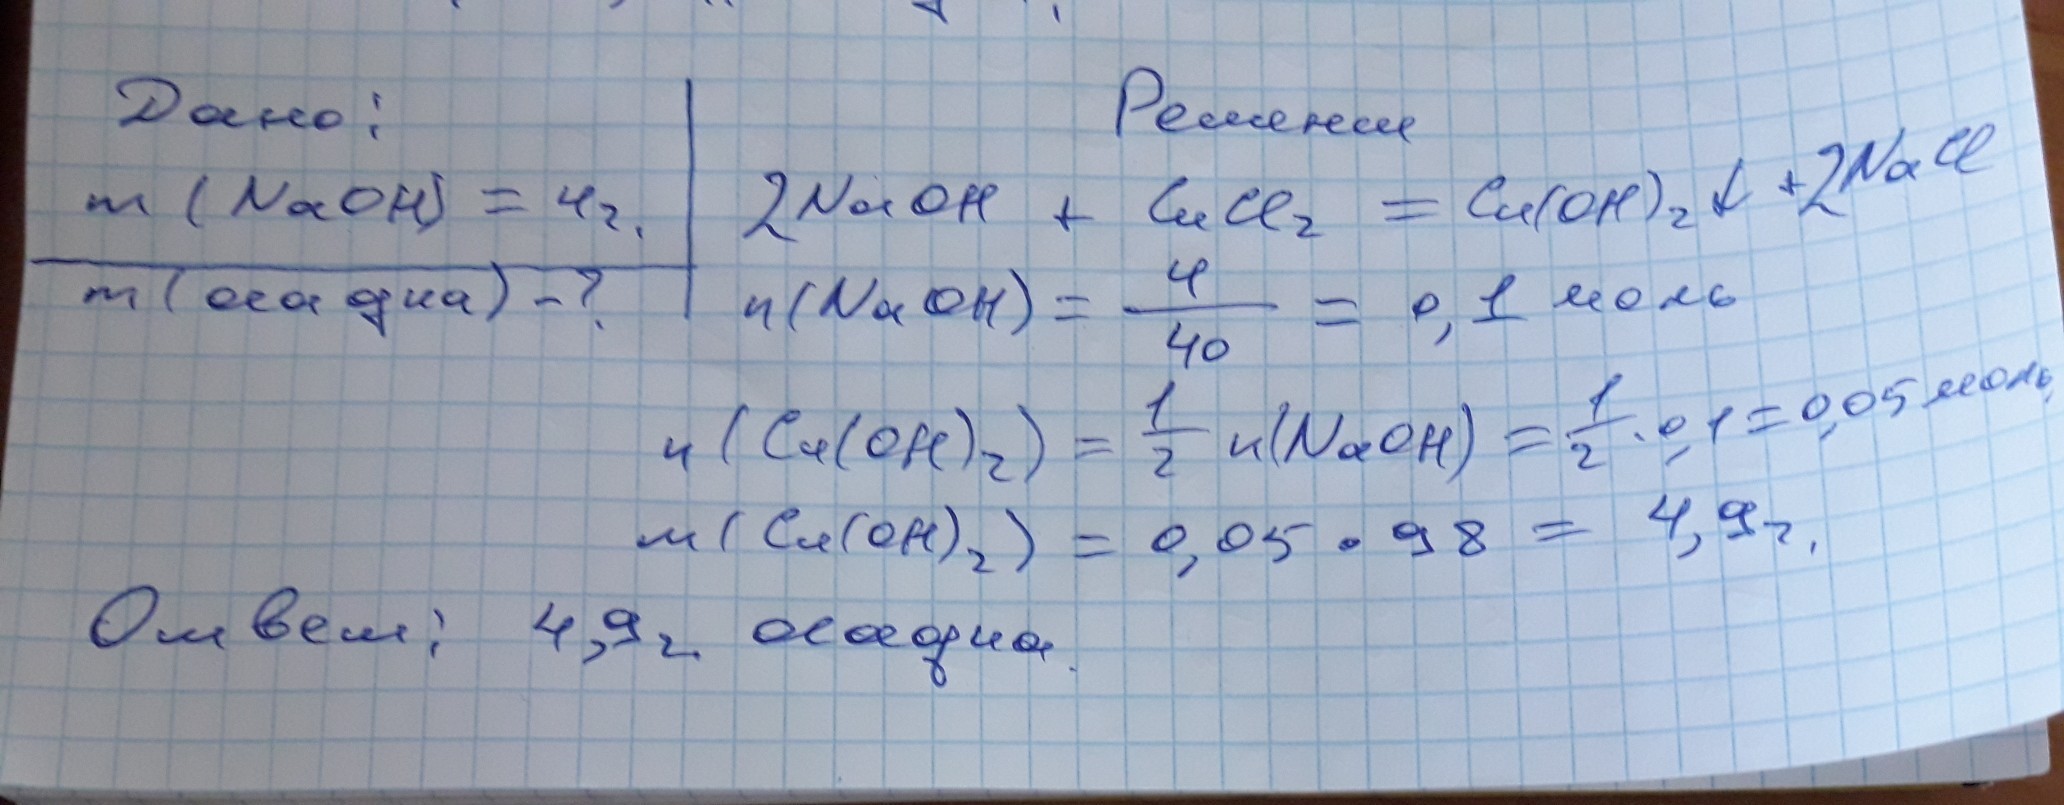 Дано:
m (NaOH) = 4г.
m (осадка) - ?
Решение
2NaOH + CuCl₂ = Cu(OH)₂↓ + 2NaCl
n(NaOH) = 4/40 = 0,1 моль
n(Cu(OH)₂) = 1/2 n(NaOH) = 1/2 · 0,1 = 0,05 моль
m(Cu(OH)₂) = 0,05 · 98 = 4,9г.
Ответ: 4,9г. осадка.